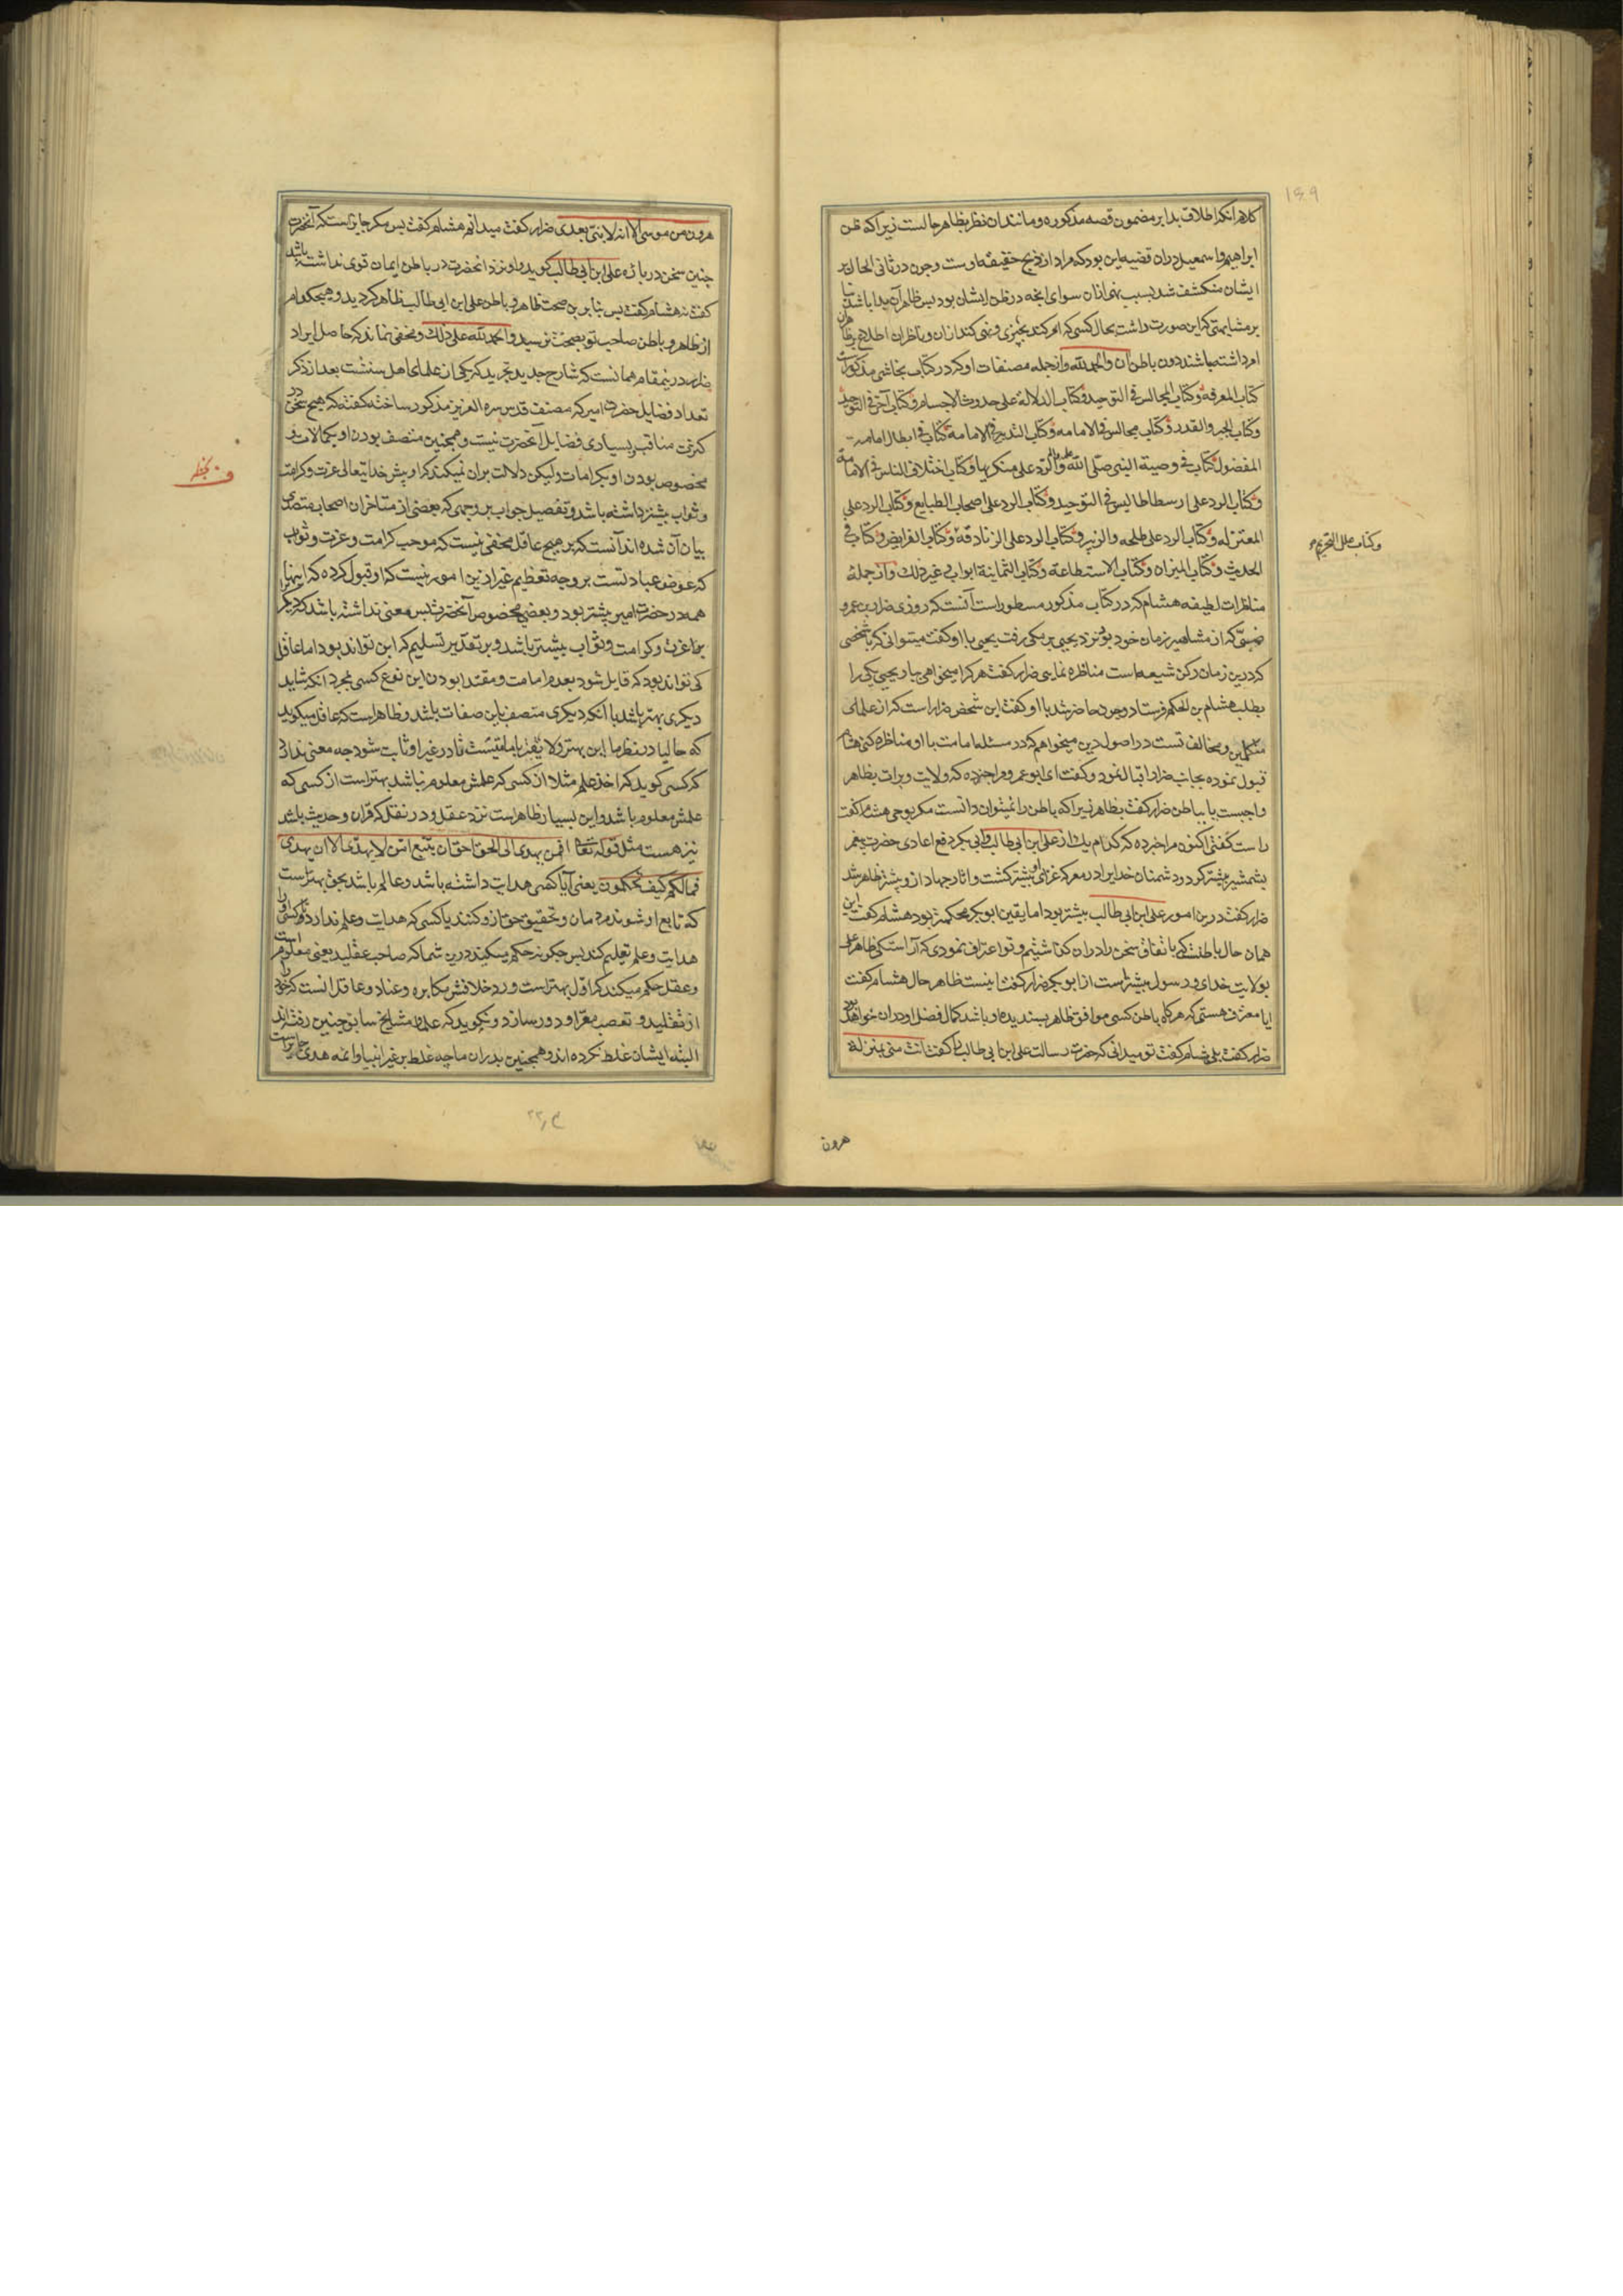 کلام انکه اطلاق بدا بر مضمون قصه مذکوره و مانند ان نظر بظاهر حالست زیرا که ظن
ابراهیم و اسمعیل دران قضیه این بود که مراد از ذبح حقیقة اوست و چون در ثانی الحال بر
ایشان منکشف شد بسبب نهی ازان سوای انچه در ظن ایشان بود پس ظاهر آن بدا باشد بنا
بر مشابهتی که این صورت داشت بحال کسی که امر کند بچیزی و نهی کند ازان و ناظران اطلاع بر ظاهر ان
امر داشته باشند دون باطن آن والحمد لله و از جمله مصنفات او که در کتاب نجاشی مذکورست
کتاب المعرفه و کتاب المجالس فی التوحید و کتاب الدلالة علی حدوث الاجسام و کتاب آخر فی التوحید
و کتاب الجبر و القدر و کتاب مجالس فی الامامه و کتاب التدبیر فی الامامة کتاب فی ابطال امامه
المفضول کتاب فی وصیة النبی صلی الله علیه واله والرد علی منکریها و کتاب اختلاف الناس فی الامامة
و کتاب الرد علی ارسطاطالیس فی التوحید و کتاب الرد علی اصحاب الطبایع و کتاب الرد علی
المعتزله و کتاب الرد علی طلحه والزبیر و کتاب الرد علی الزنادقة و کتاب الفرایض و کتاب فی
وکتاب علل التحریم
الحدیث و کتاب المیزان و کتاب الاستطاعة و کتاب الثمانیة ابواب و غیر ذلک و از جمله
مناظرات لطیفه هشام که در کتاب مذکور مسطور است آنست که روزی ضرار بن عمرو
ضبی که از مشاهیر زمان خود بود نزد یحیی برمکی رفت یحیی با او گفت میتوانی که با شخصی
که درین زمان رکن شیعه است مناظره نمایی ضرار گفت هر کرا میخواهی بیار یحیی یکی را
بطلب هشام بن الحکم فرستاد و چون حاضر شد با او گفت این شخص ضرار است که از علمای
متکلمین و مخالف تست در اصول دین میخواهم که در مسئله امامت با او مناظره کنی هشام
قبول نموده بجانب ضرار اقبال نمود و گفت ای ابو عمرو مرا خبر ده که ولایت و برات بظاهر
واجبست یا بباطن ضرار گفت بظاهر زیرا که باطن را نمیتوان دانست مکر بوحی هشام گفت
راست گفتی اکنون مرا خبر ده که کدام یک از علی ابن ابی طالب و ابی بکر دفع اعادی حضرت پیغمبر
بشمشیر بیشتر کرد و دشمنان خدایرا در معرکه غزای او بیشتر کشت و اثار جهاد ازو بیشتر ظاهر شد
ضرار گفت درین امور علی ابن ابی طالب بیشتر بود اما یقین ابو بکر محکمتر بود هشام گفت این
همان حال باطنست که باتفاق سخن را دران گذاشتیم و تو اعتراف نمودی که آراستگی ظاهر علی
بولایت خدای و رسول بیشتر است از ابو بکر ضرار گفت اینست ظاهر حال هشام گفت
ایا معترف هستی که هرگاه باطن کسی موافق ظاهر پسندیده او باشد کمال فضل او دران خواهد بود
ضرار گفت بلی هشام گفت تو میدانی که حضرت رسالت علی ابن ابی طالب را گفت انت منی بمنزلة
هرون
هرون من موسی الا انه لا نبی بعدی ضرار گفت میدانم هشام گفت پس مکر جایز است که آنحضرت
چنین سخن در باره علی ابن ابی طالب گوید و او نزد انحضرت در باطن ایمان قوی نداشته باشد
گفت نه هشام گفت پس بنا برین صحت ظاهر و باطن علی ابن ابی طالب ظاهر گردید و هیچکدام
از ظاهر و باطن صاحب تو بصحت نرسید والحمد لله علی ذلک و مخفی نماند که حاصل ایراد
ضرار درینمقام همانست که شارح جدید تجرید که یکی از علمای اهل سنتست بعد از ذکر
تعداد فضایل حضرت امیر که مصنف قدس سره العزیز مذکور ساخته گفته که هیچ سخن در
کثرت مناقب و بسیاری فضایل آنحضرت نیست و همچنین متصف بودن او بکمالات و
مخصوص بودن او بکرامات ولیکن دلالت بران نمیکند که او پیش خدایتعالی عزت و کرامت
و ثواب بیشتر داشته باشد و تفصیل جواب بر وجهی که بعضی از متاخران اصحاب متصدی
بیان آن شده اند آنست که بر هیچ عاقل مخفی نیست که موجب کرامت و عزت و ثواب
که عوض عبادتست بر وجه تعظیم غیر ازین امور نیست که او قبول کرده که اینها
همه در حضرت امیر بیشتر بود و بعضی مخصوص آنحضرت پس معنی نداشته باشد که دیگر
را عزت و کرامت و ثواب بیشتر باشد و بر تقدیر تسلیم که این تواند بود اما عاقل
کی تواند بود که قایل شود بعدم امامت و مقتدا بودن این نوع کسی بمجرد انکه شاید
دیگری بهتر باشد با آنکه دیگری متصف باین صفات باشد و ظاهر است که عاقل میگوید
که حالیا در نظر ما این بهتر و لایقتر بامامتست تا در غیر او ثابت شود چه معنی ندارد
که کسی گوید که اخذ علم مثلا از کسی که علمش معلوم نباشد بهتر است از کسی که
علمش معلوم باشد و این بسیار ظاهر است نزد عقل و در نقل که قران و حدیث باشد
نیز هست مثل قوله تعالی افمن یهدی الی الحق احق ان یتبع امن لا یهدی الا ان یهدی
فما لکم کیف تحکمون یعنی آیا کسی هدایت داشته باشد و عالم باشد بحق بهتر است
که تابع او شوند مردمان و تحقیق حق ازو کنند یا کسی که هدایت و علم ندارد و کسی او را
هدایت و علم تعلیم کند پس چگونه حکم میکنید درین شما که صاحب عقلید یعنی معلوم است
و عقل حکم میکند که اول بهتر است و رد خلافش مکابره و عناد و عاقل انست که خود را
از تقلید و تعصب معرا و دور سازد و نگوید که علما و مشایخ سابق چنین رفته اند
البته ایشان غلط نکرده اند و همچنین پدران ما چه غلط بر غیر انبیا و ائمه هدی جایز است